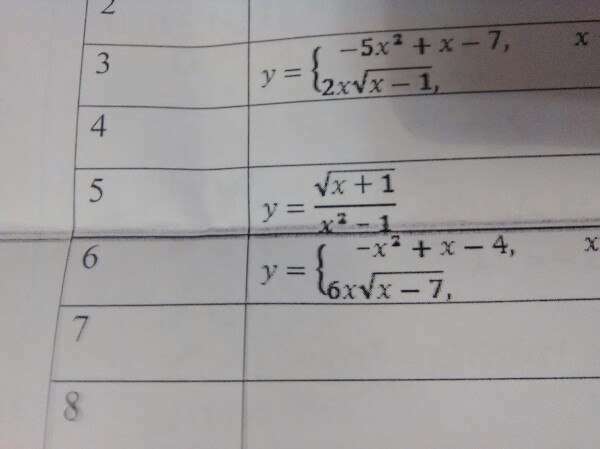 2
3 y = { −5x² + x − 7, x
2x√x − 1,
4
5 y = √x + 1 / x² − 1
6 y = { −x² + x − 4, x
6x√x − 7,
7
8